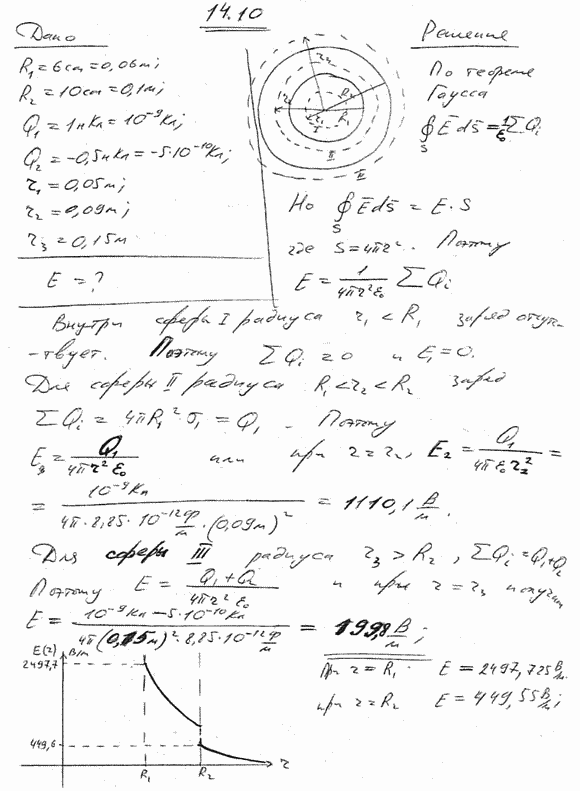 14.10
Дано
R₁=6см=0,06м;
R₂=10см=0,1м;
Q₁=1нКл=10⁻⁹Кл;
Q₂=-0,5нКл=-5·10⁻¹⁰Кл;
r₁=0,05м;
r₂=0,09м;
r₃=0,15м
E=?
r₂
r₁
R₁
I
II
III
Решение
По теореме
Гаусса
∮_S E̅ds̅=1/ε₀ ΣQᵢ
Но ∮_S E̅ds̅=E·S
где S=4πr². Поэтому
E=1/(4πr²ε₀) ΣQᵢ
Внутри сферы I радиуса r₁<R₁ заряд отсут-
-твует. Поэтому ΣQᵢ=0 и E₁=0.
Для сферы II радиуса R₁<r₂<R₂ заряд
ΣQᵢ=4πR₁²σ₁=Q₁. Поэтому
E₂=Q₁/(4πr²ε₀) или при r=r₂, E₂=Q₁/(4πε₀r₂²)=
=10⁻⁹Кл/(4π·8,85·10⁻¹²Ф/м·(0,09м)²)=1110,1 В/м.
Для сферы III радиуса r₃>R₂, ΣQᵢ=Q₁+Q₂
Поэтому E=(Q₁+Q₂)/(4πr²ε₀) и при r=r₃ получим
E=(10⁻⁹Кл-5·10⁻¹⁰Кл)/(4π(0,15м)²·8,85·10⁻¹²Ф/м)=199,8 В/м;
При r=R₁ E=2497,725В/м.
при r=R₂ E=449,55В/м;
E(r) В/м
2497,7
449,6
R₁ R₂ r